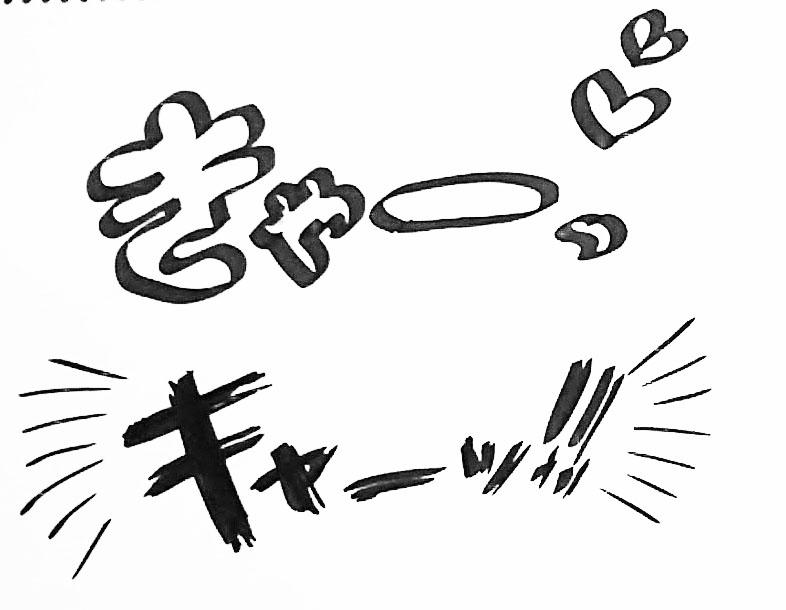 きゃーっ♡♡
キャーッ!!!